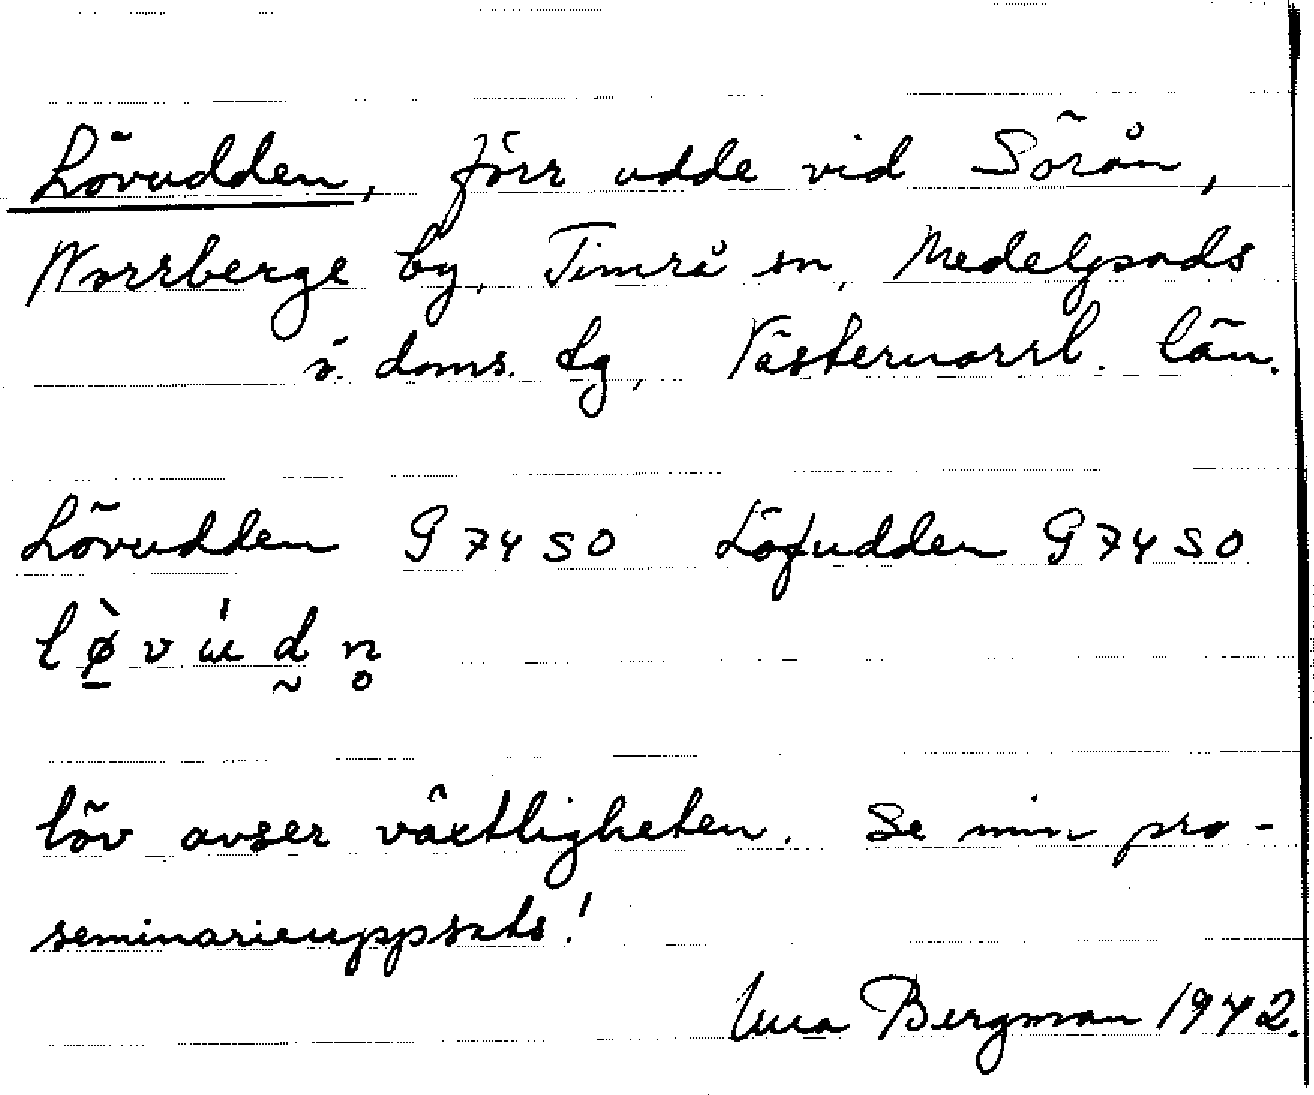 Lövudden, förr udde vid Sörån,
Norrberge by, Timrå sn, Medelpads
v. doms. tg, Västernorrl. län.
Lövudden G 74 SO Löfudden G 74 SO
lø̱̀vúd̰n̥
löv avser växtligheten. Se min pro-
seminarieuppsats!
Bergman 1942.